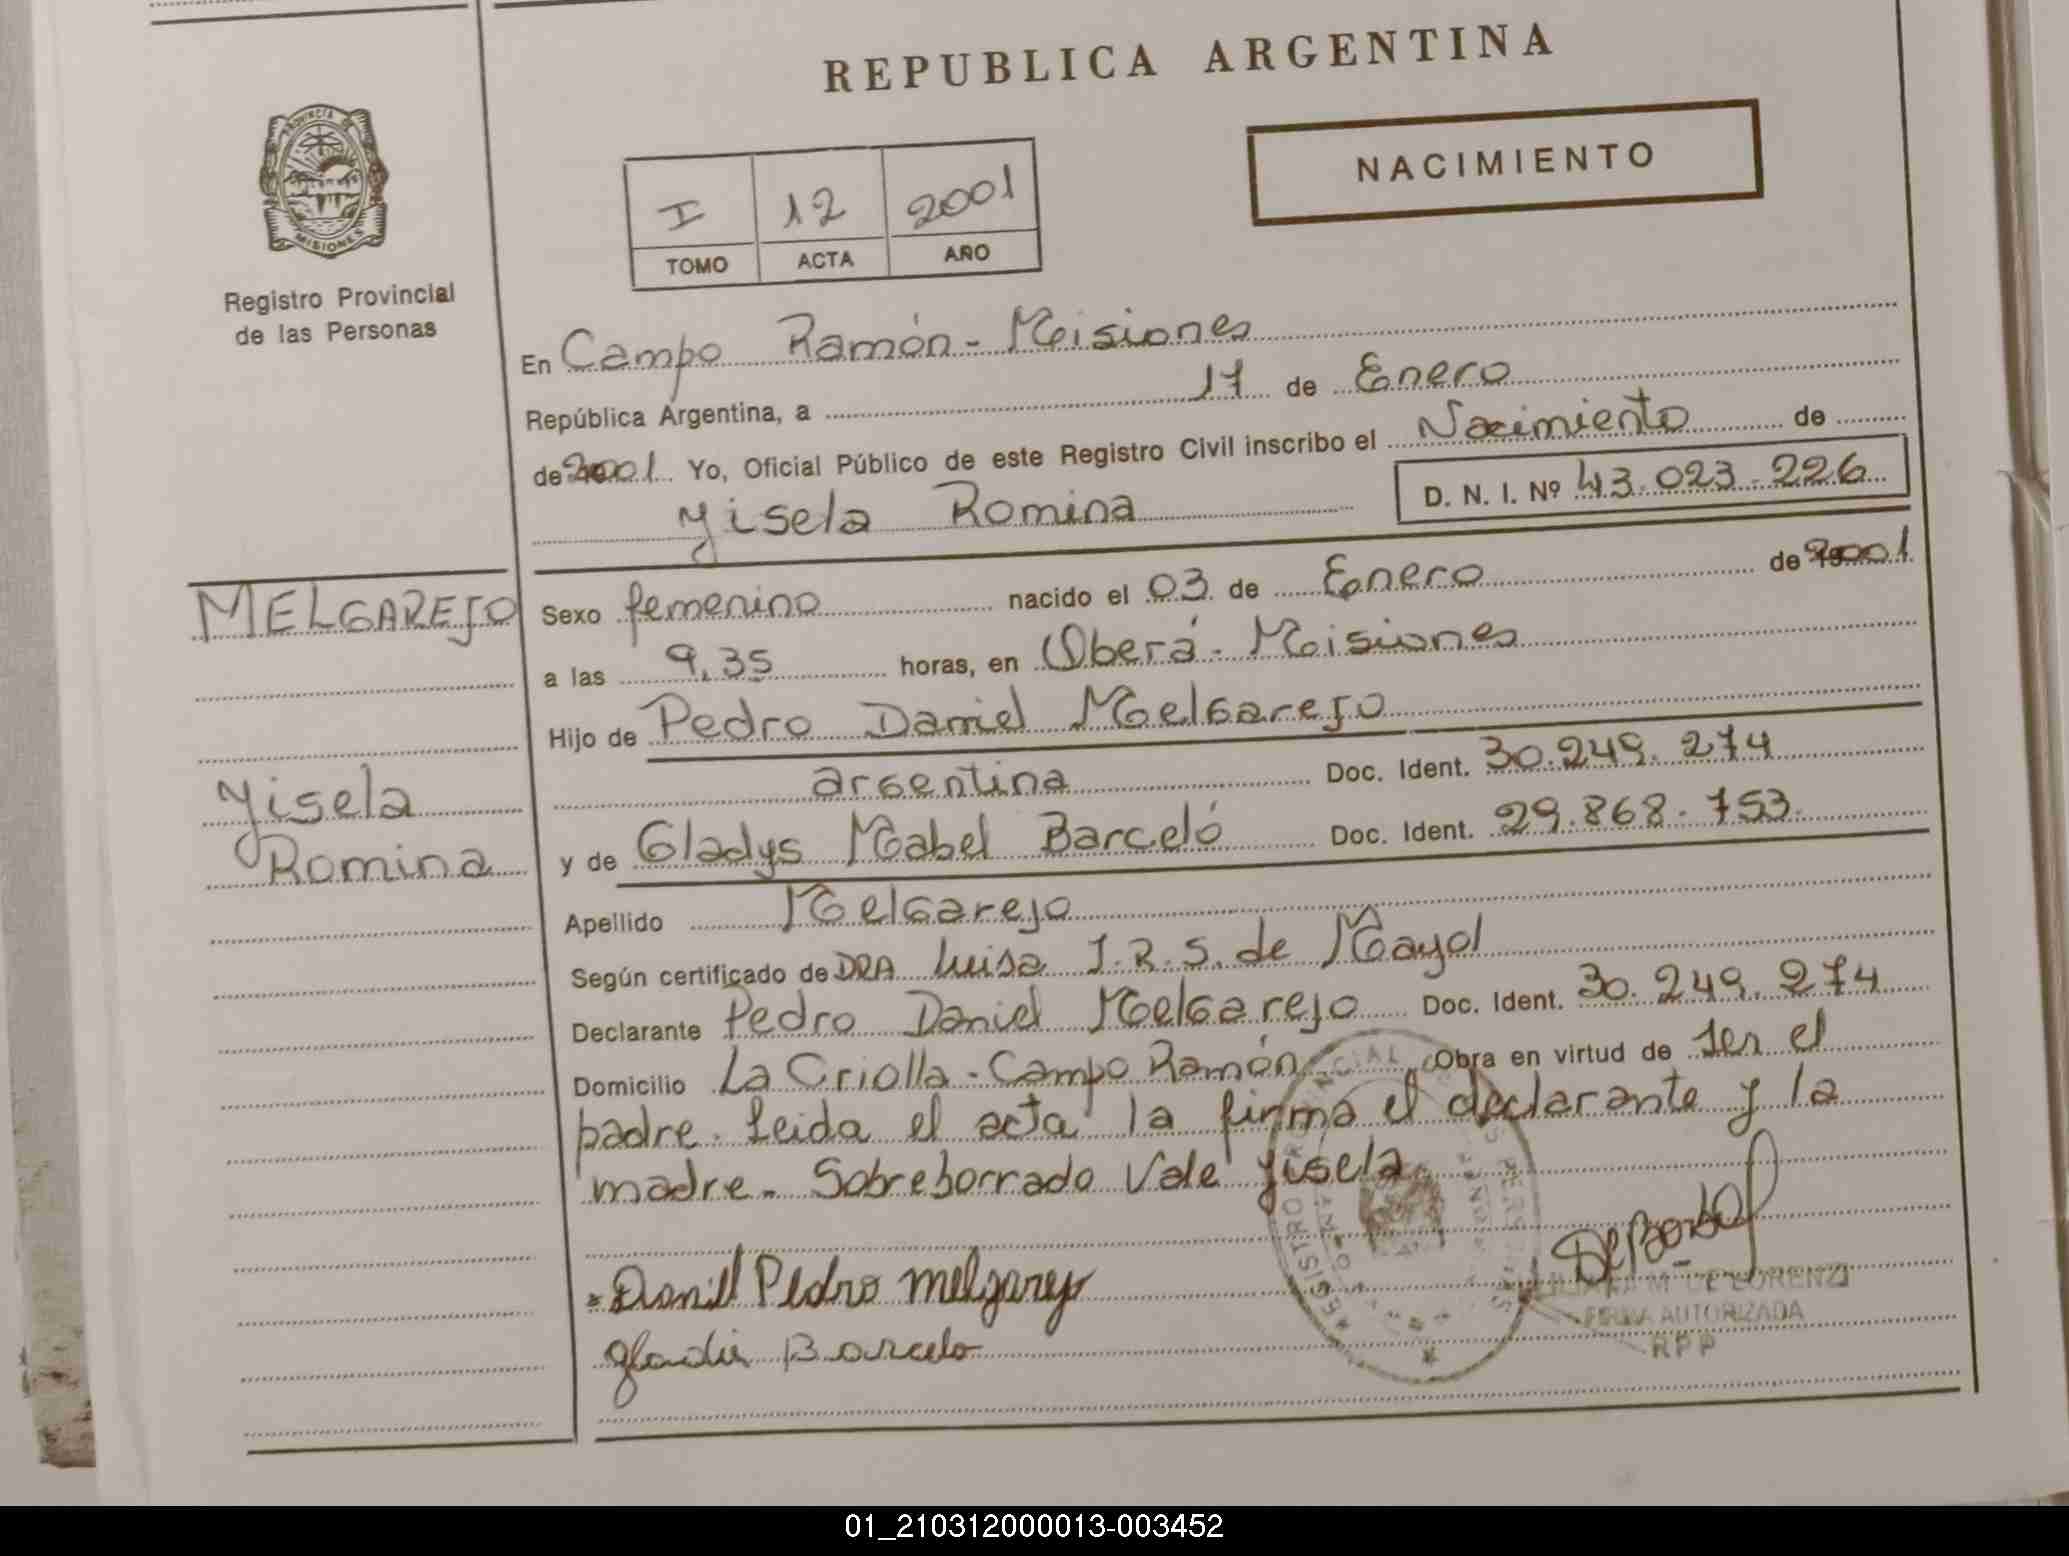 REPUBLICA ARGENTINA
NACIMIENTO
PROVINCIA DE
MISIONES
Registro Provincial
de las Personas
I 12 2001
TOMO ACTA AÑO
En Campo Ramón - Misiones
República Argentina, a 17 de Enero
de 2001 Yo, Oficial Público de este Registro Civil inscribo el Nacimiento de
Yisela Romina D. N. I. Nº 43.023.226
MELGAREJO
Yisela
Romina
Sexo femenino nacido el 03 de Enero de 2001
a las 9,35 horas, en Oberá - Misiones
Hijo de Pedro Daniel Melgarejo
argentina Doc. Ident. 30.249.274
y de Gladys Mabel Barceló Doc. Ident. 29.868.753.
Apellido Melgarejo
Según certificado de DRA Luisa I.R.S. de Mayol
Declarante Pedro Daniel Melgarejo Doc. Ident. 30.249.274
Domicilio La Criolla - Campo Ramón Obra en virtud de ser el
padre. Leida el acta la firma el declarante y la
madre. Sobreborrado Vale Yisela
Daniel Pedro Melgarejo
gladis Barcelo
REGISTRO PROVINCIAL
M. DE LORENZI
FIRMA AUTORIZADA
RPP
01_210312000013-003452